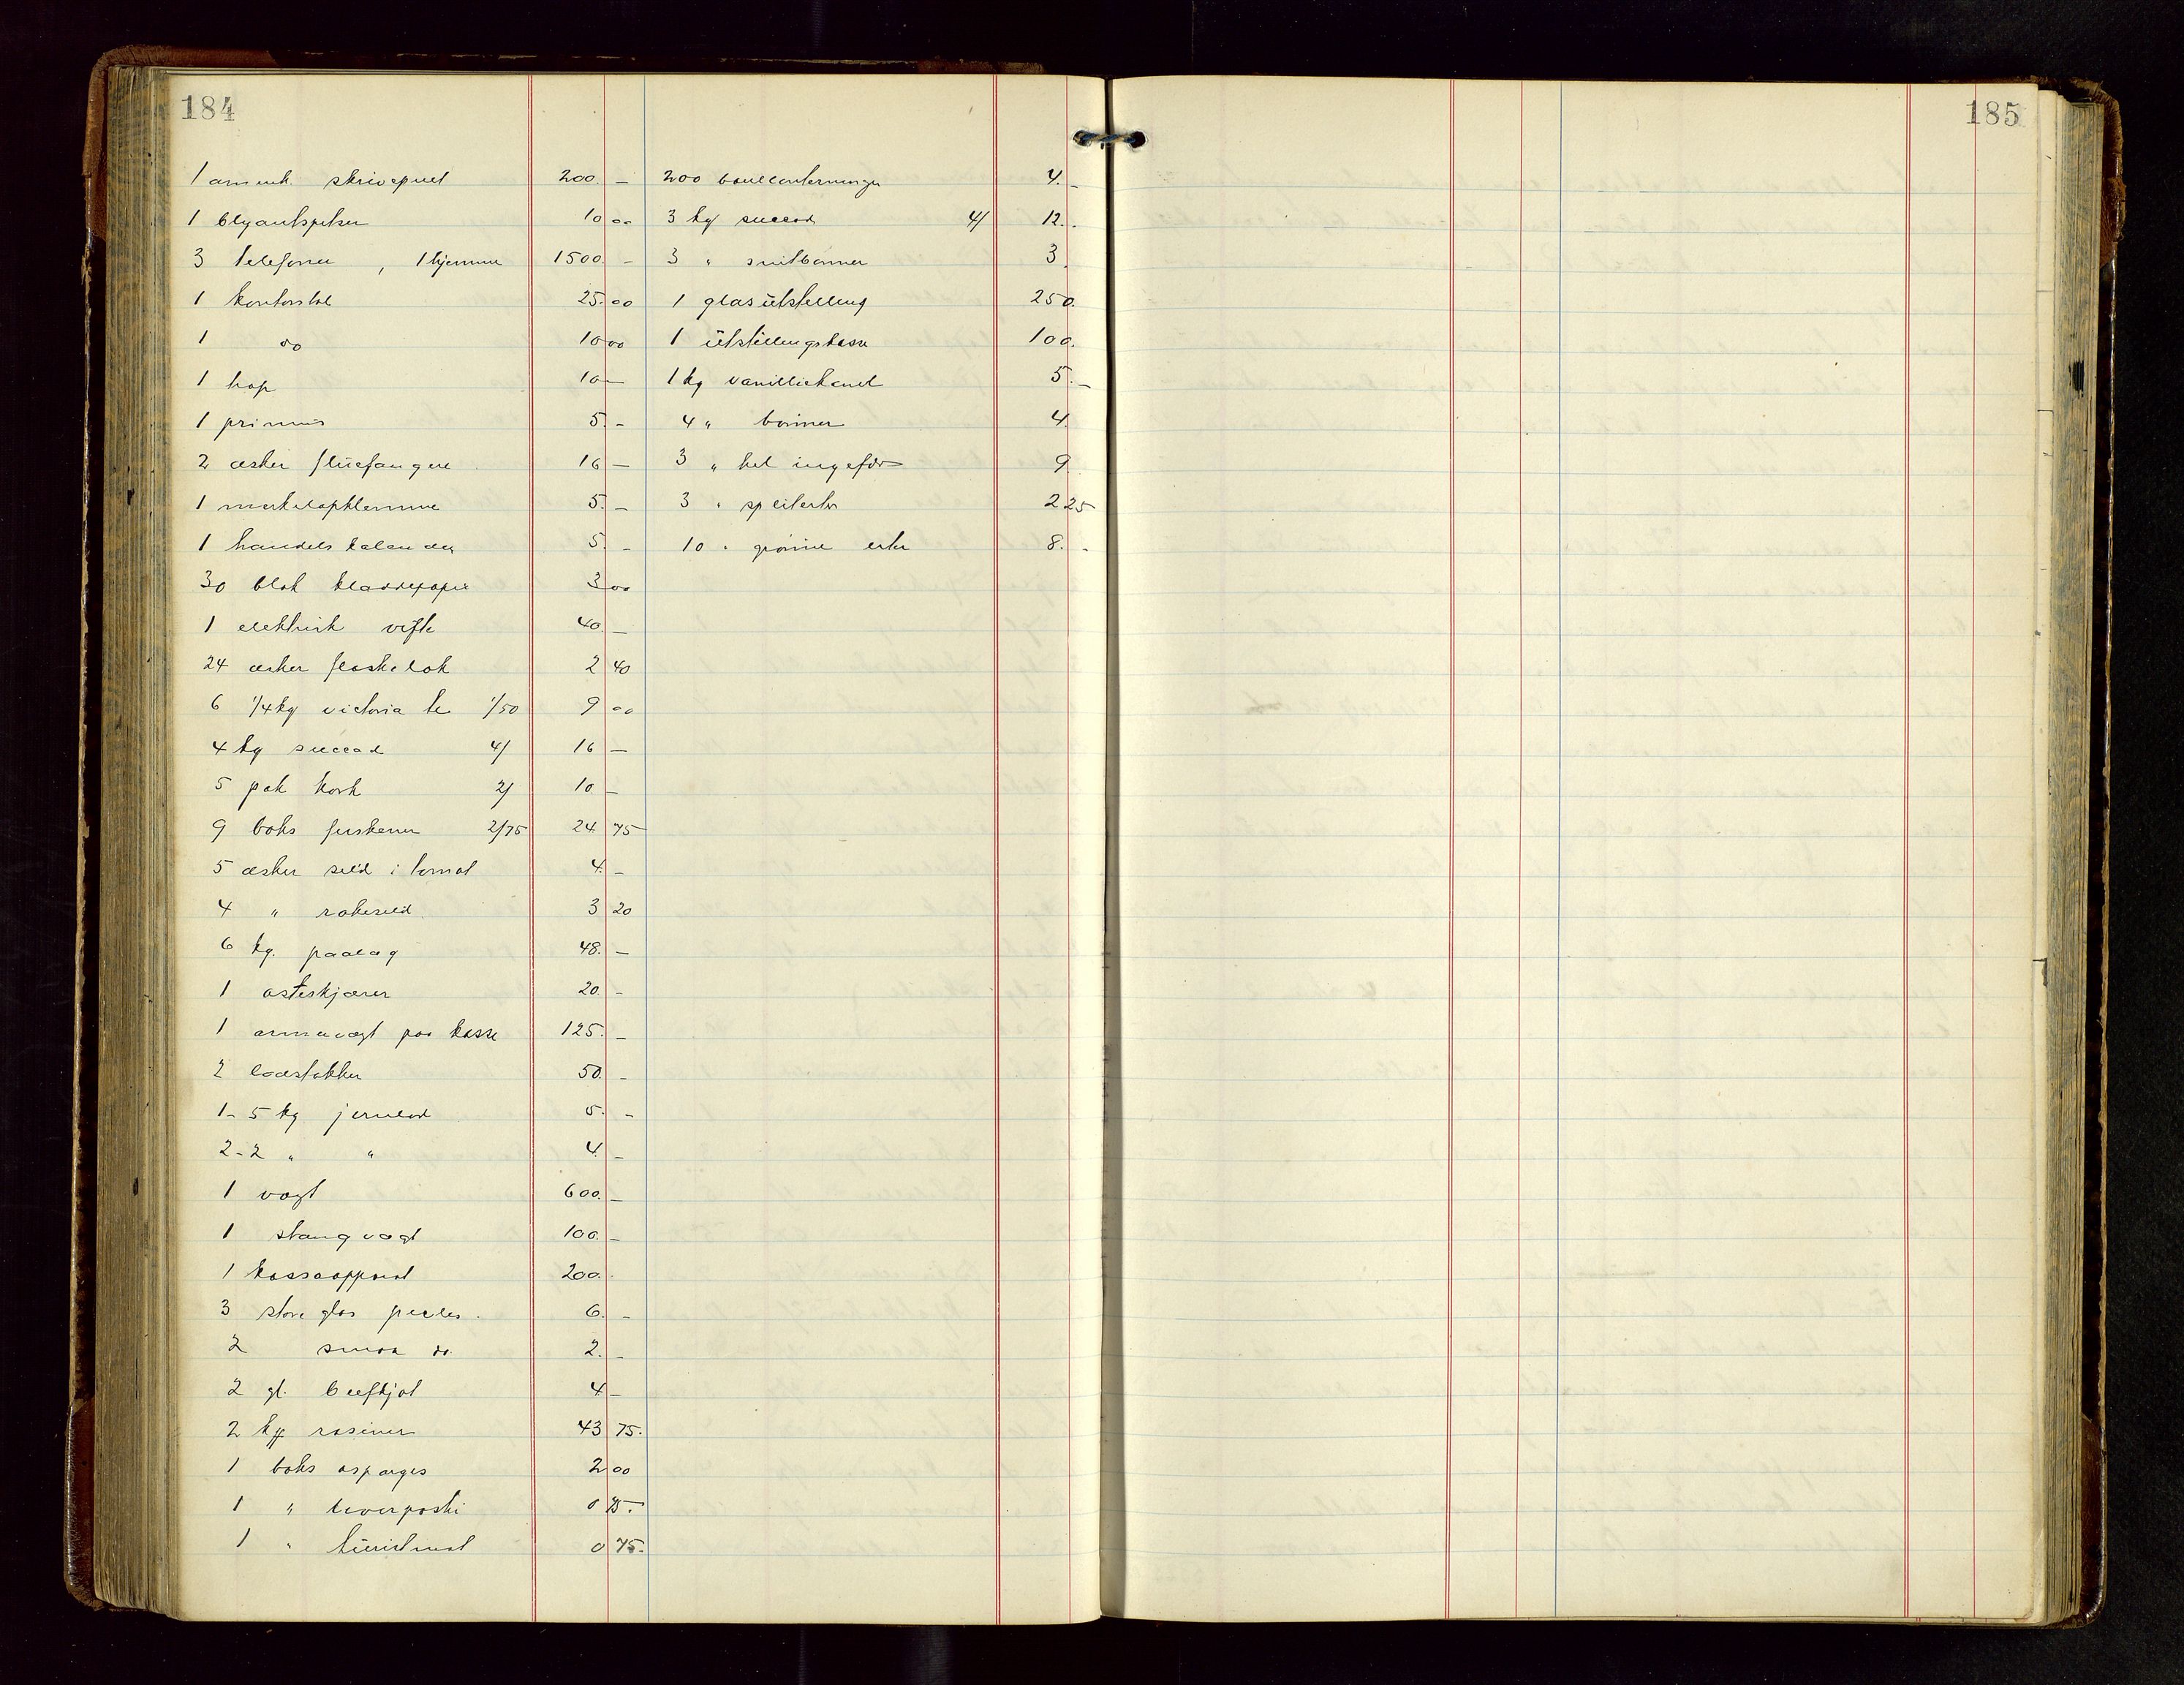 184
1 amerik. skrivepult 200. –
1 blyantspisser 10 00
3 telefoner , 1 hjemme 1500. –
1 kontorstol 25. 00
1 do 10 00
1 kop 10 –
1 primus 5. –
2 æsker fluefangere 16 –
1 merkelapklemme 5. –
1 handelskalender 5. –
30 blok kladdepapir 3 00
1 elektrisk vifte 40. –
24 æsker flaskelak 2 40
6 1/4 kg victoria te 1/50 9 00
4 kg succad 4/ 16 –
5 pak kork 2/ 10 –
9 boks ferskener 2/75 24. 75
5 æsker sild i tomat 4. –
4 " røkesild 3 20
6 kg. paalæg 48. –
1 osteskjærer 20. –
1 armevægt paa kasse 125. –
2 lodstokker 50. –
1 - 5 kg jernlod 5. –
2 - 2 " " 4 –
1 vægt 600. –
1 stangvægt 100. –
1 kassaapparat 200.
3 store glas pickles. 6. –
2 smaa do. 2. –
2 gl. beefkjøt 4 –
2 kg rosiner 43 75.
1 boks asparges 2 00
1 " leverpostei 0 75.
1 " turistmat 0 75.
200 bouillonterninger 4. –
3 kg succad 4/ 12. .
3 " snitbønner 3.
1 glasutstilling 250.
1 utstillingskasse 100.
1 kg vanilliekanel 5. –
4 " bønner 4.
3 " hel ingefær 9
3 " spliterter 2 25
10 " grønne erter 8. -
185